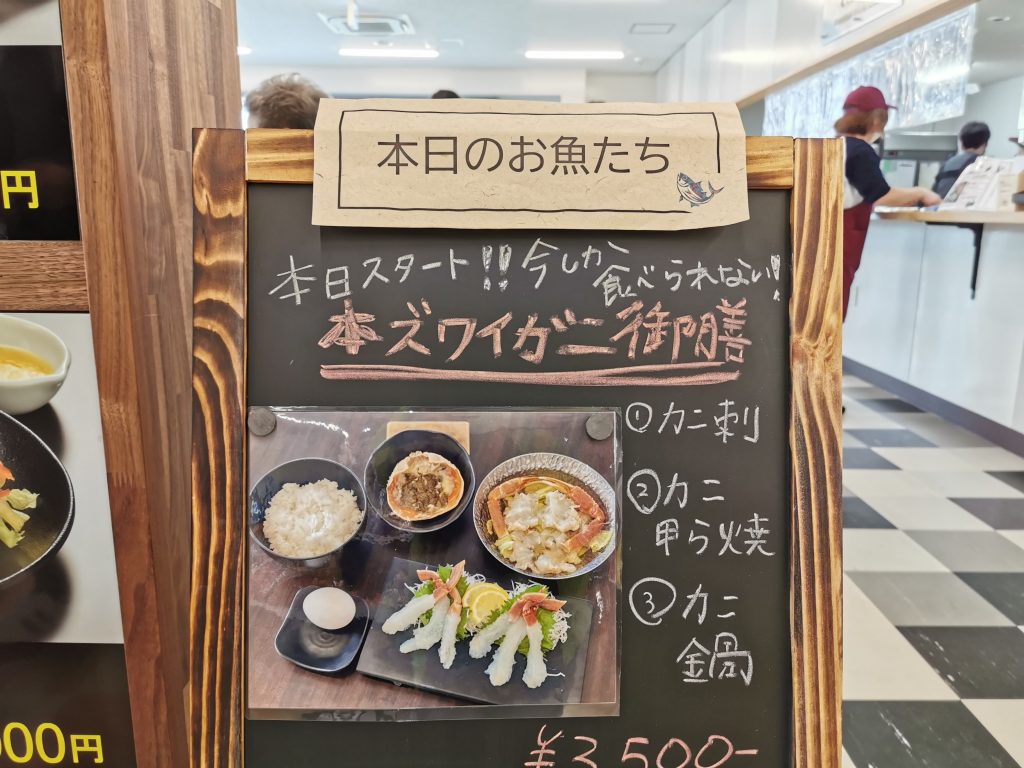 円
本日のお魚たち
本日スタート!!今しか食べられない!
本ズワイガニ御膳
①カニ刺
②カニ
甲ら焼
③カニ
鍋
¥3,500-
00円